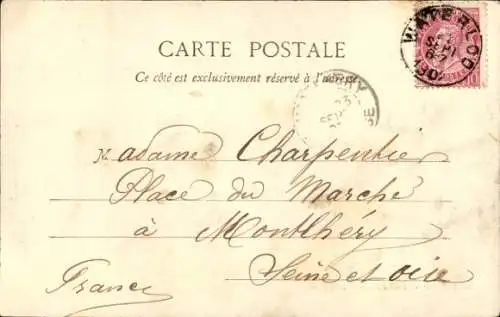 WATERLOO
CARTE POSTALE
Ce côté est exclusivement réservé à l'adresse
Madame Charpentier
Place du Marché
à Montlhéry
Seine et oise
France